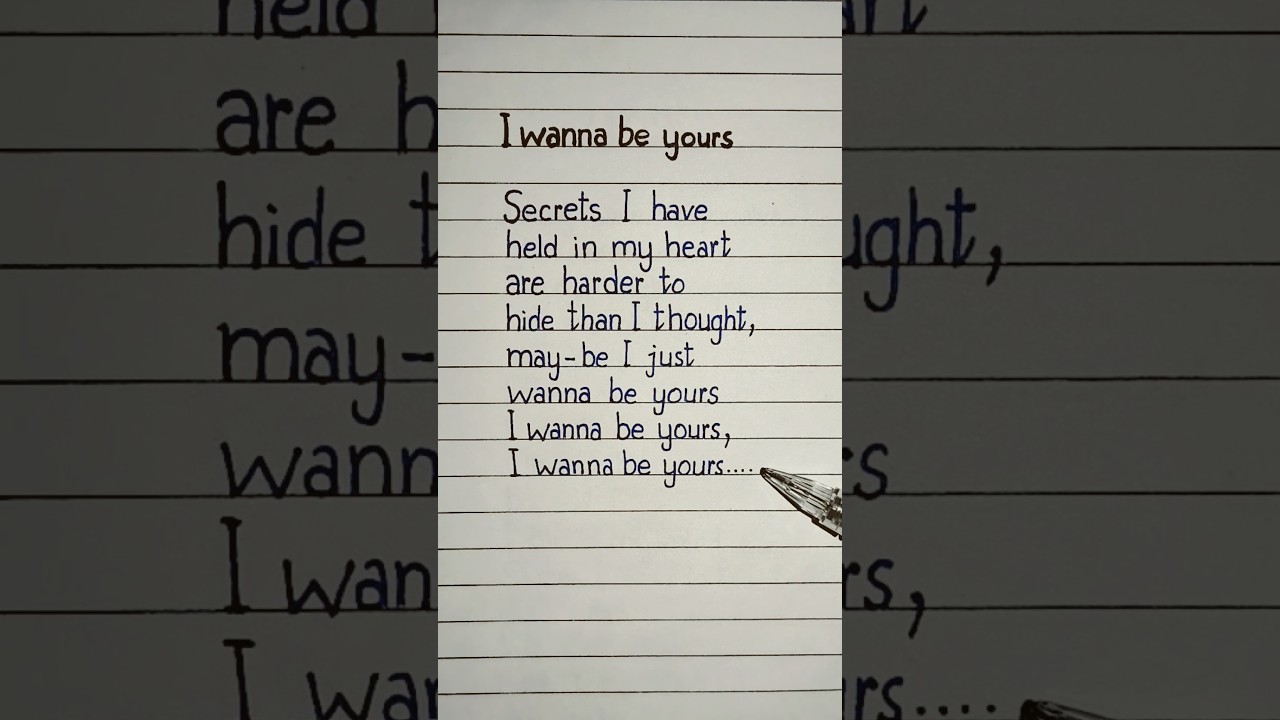 I wanna be yours
Secrets I have
held in my heart
are harder to
hide than I thought,
may-be I just
wanna be yours
I wanna be yours,
I wanna be yours....